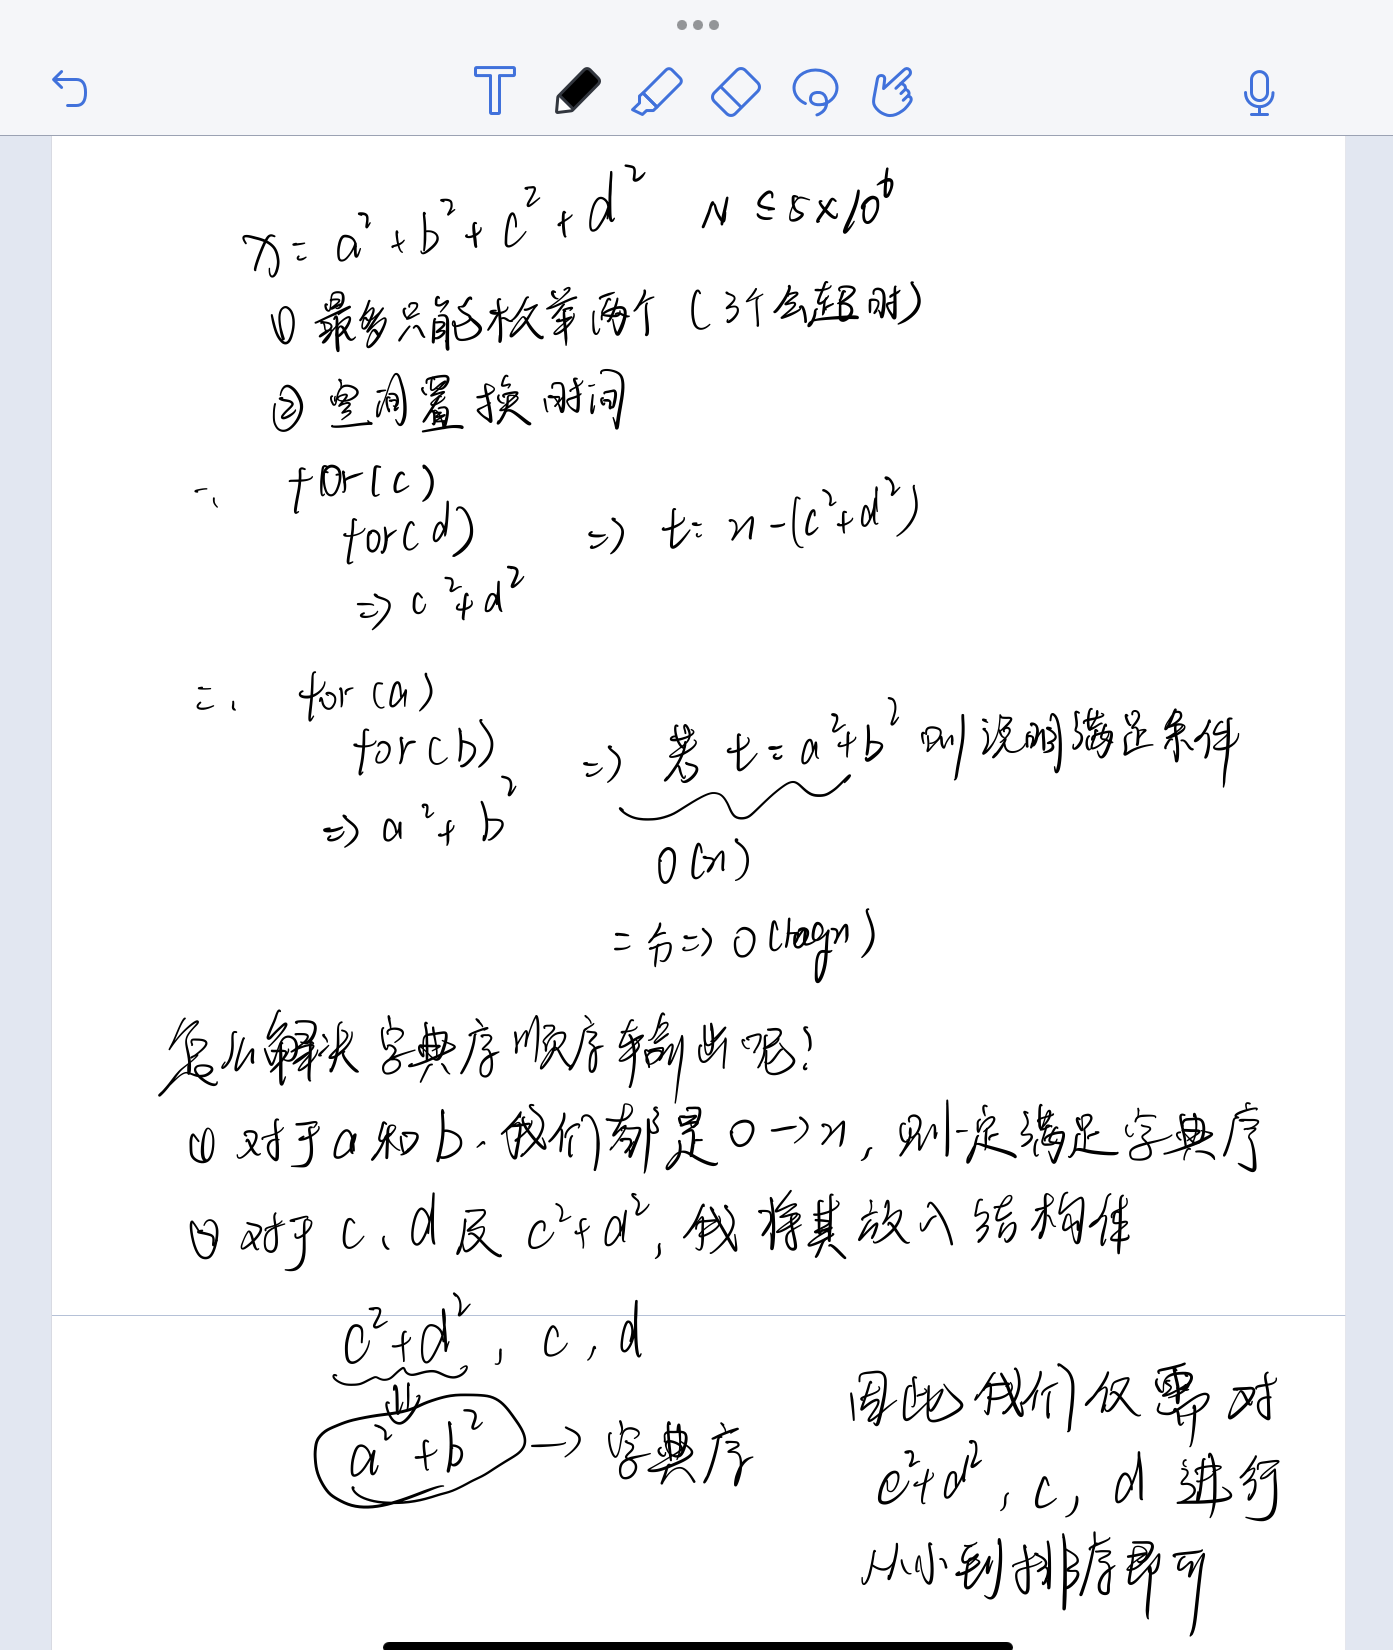 n = a²+b²+c²+d² N ≤ 5×10⁶
① 最多只能枚举两个（3个会超时）
② 空间置换时间
一、 for(c)
for(d) => t = n-(c²+d²)
=> c²+d²
二、 for(a)
for(b) => 若 t = a²+b² 则说明满足条件
=> a²+b²
O(n)
二分=> O(logn)
怎么解决字典序顺序输出呢?
① 对于a和b、我们都是0→n, 则一定满足字典序
② 对于c、d及c²+d², 我将其放入结构体
c²+d², c, d
a²+b² → 字典序
因此我们仅需对
c²+d², c, d 进行
从小到大排序即可